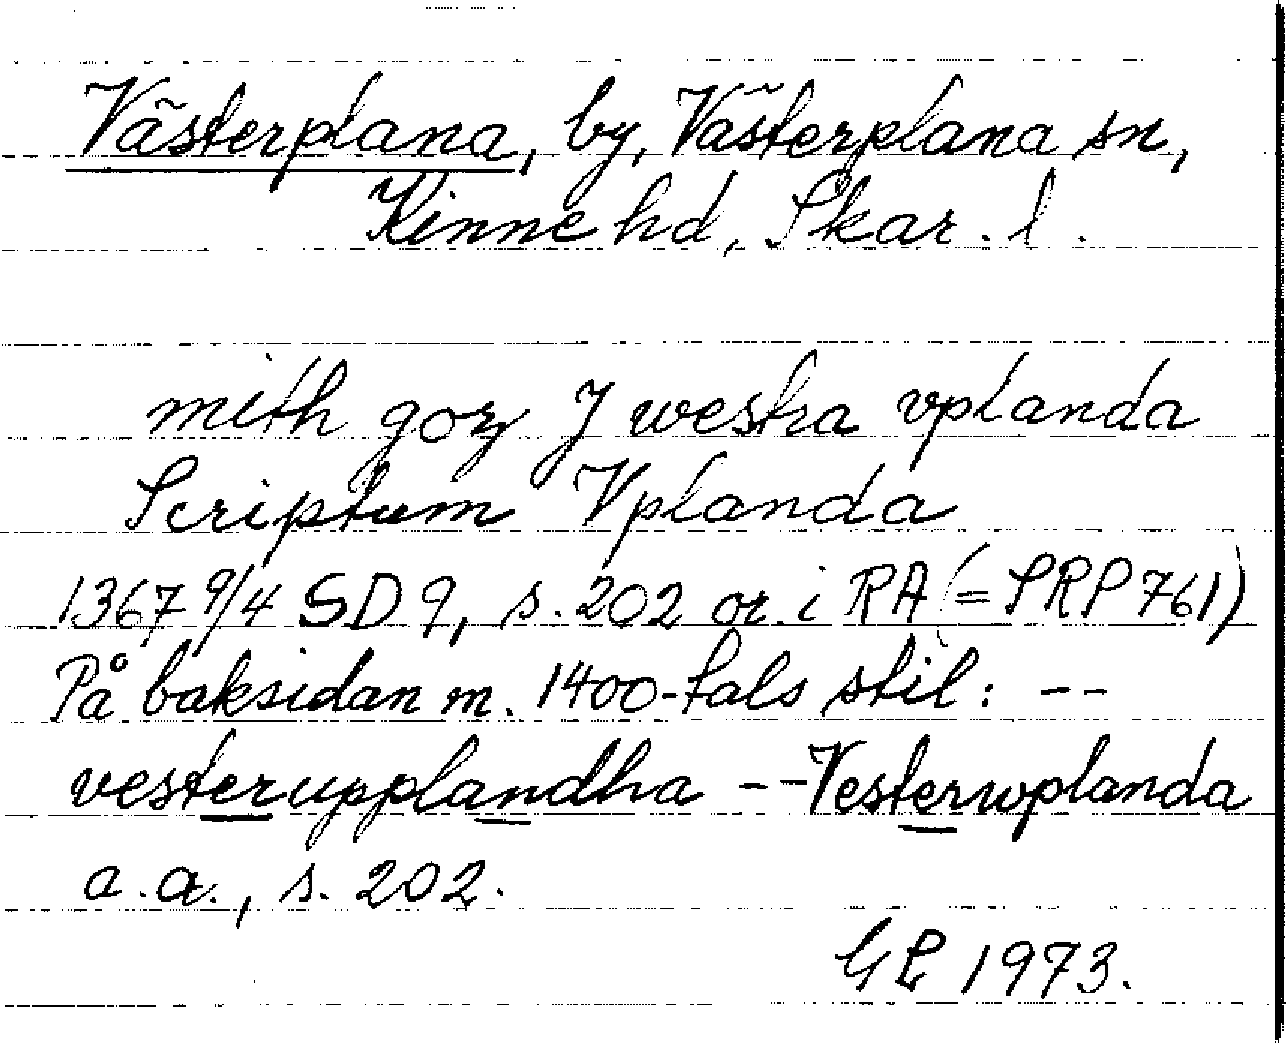 Västerplana, by, Västerplana sn,
Kinne hd, Skar. l.
mith goz J westra vplanda
Scriptum Vplanda
1367 9/4 SD 9, s. 202 or. i RA (= SRP 761)
På baksidan m. 1400-tals stil: --
vesterupplandha -- Vesterwplanda
a.a., s. 202.
GL 1973.